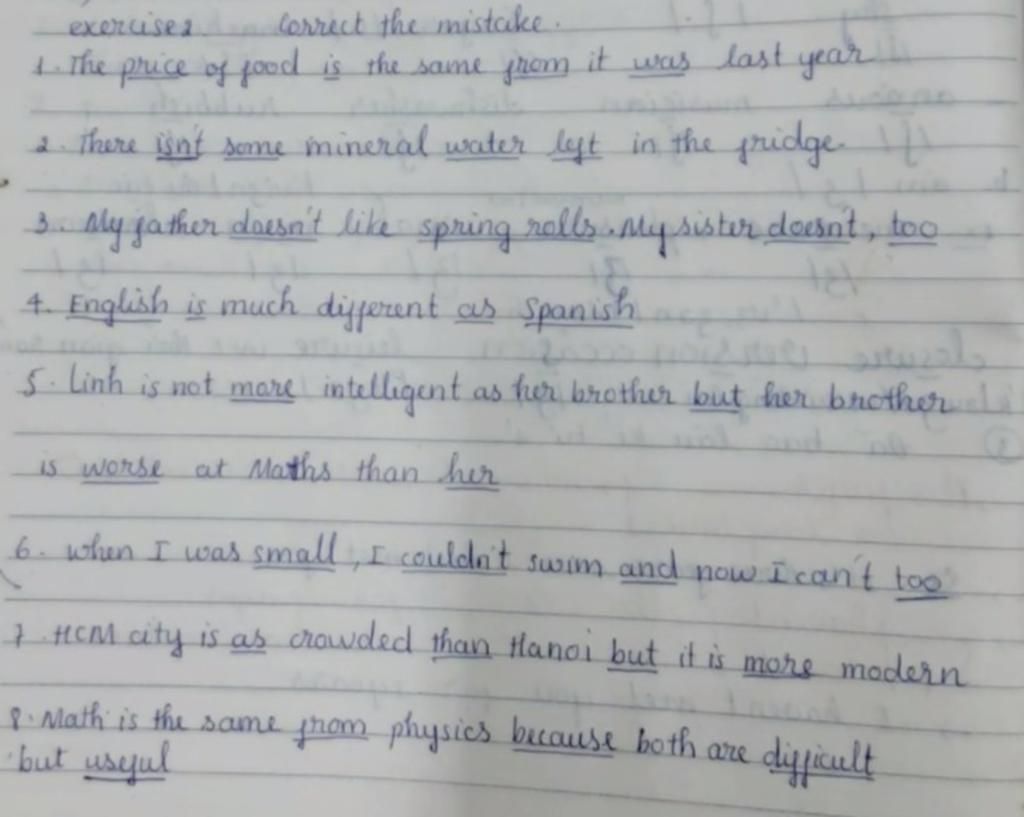 exercise2 Correct the mistake.
1. The price of food is the same from it was last year
2. There isn't some mineral water left in the fridge.
3. My father doesn't like spring rolls. My sister doesn't, too
4. English is much different as Spanish
5. Linh is not more intelligent as her brother but her brother
is worse at Maths than her
6. when I was small, I couldn't swim and now I can't too
7. HCM city is as crowded than Hanoi but it is more modern
8. Math is the same from physics because both are difficult
but useful